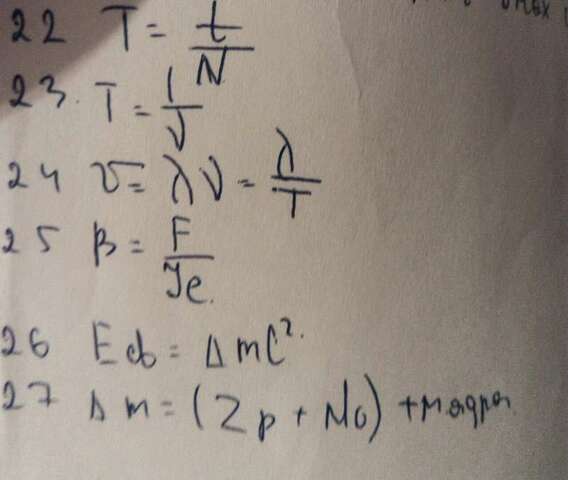 22 T = t/N
23. T = 1/ν
24 υ = λν = λ/T
25 B = F/Je
26 Eсв = Δmc².
27 Δm = (Zp + No) + mядра